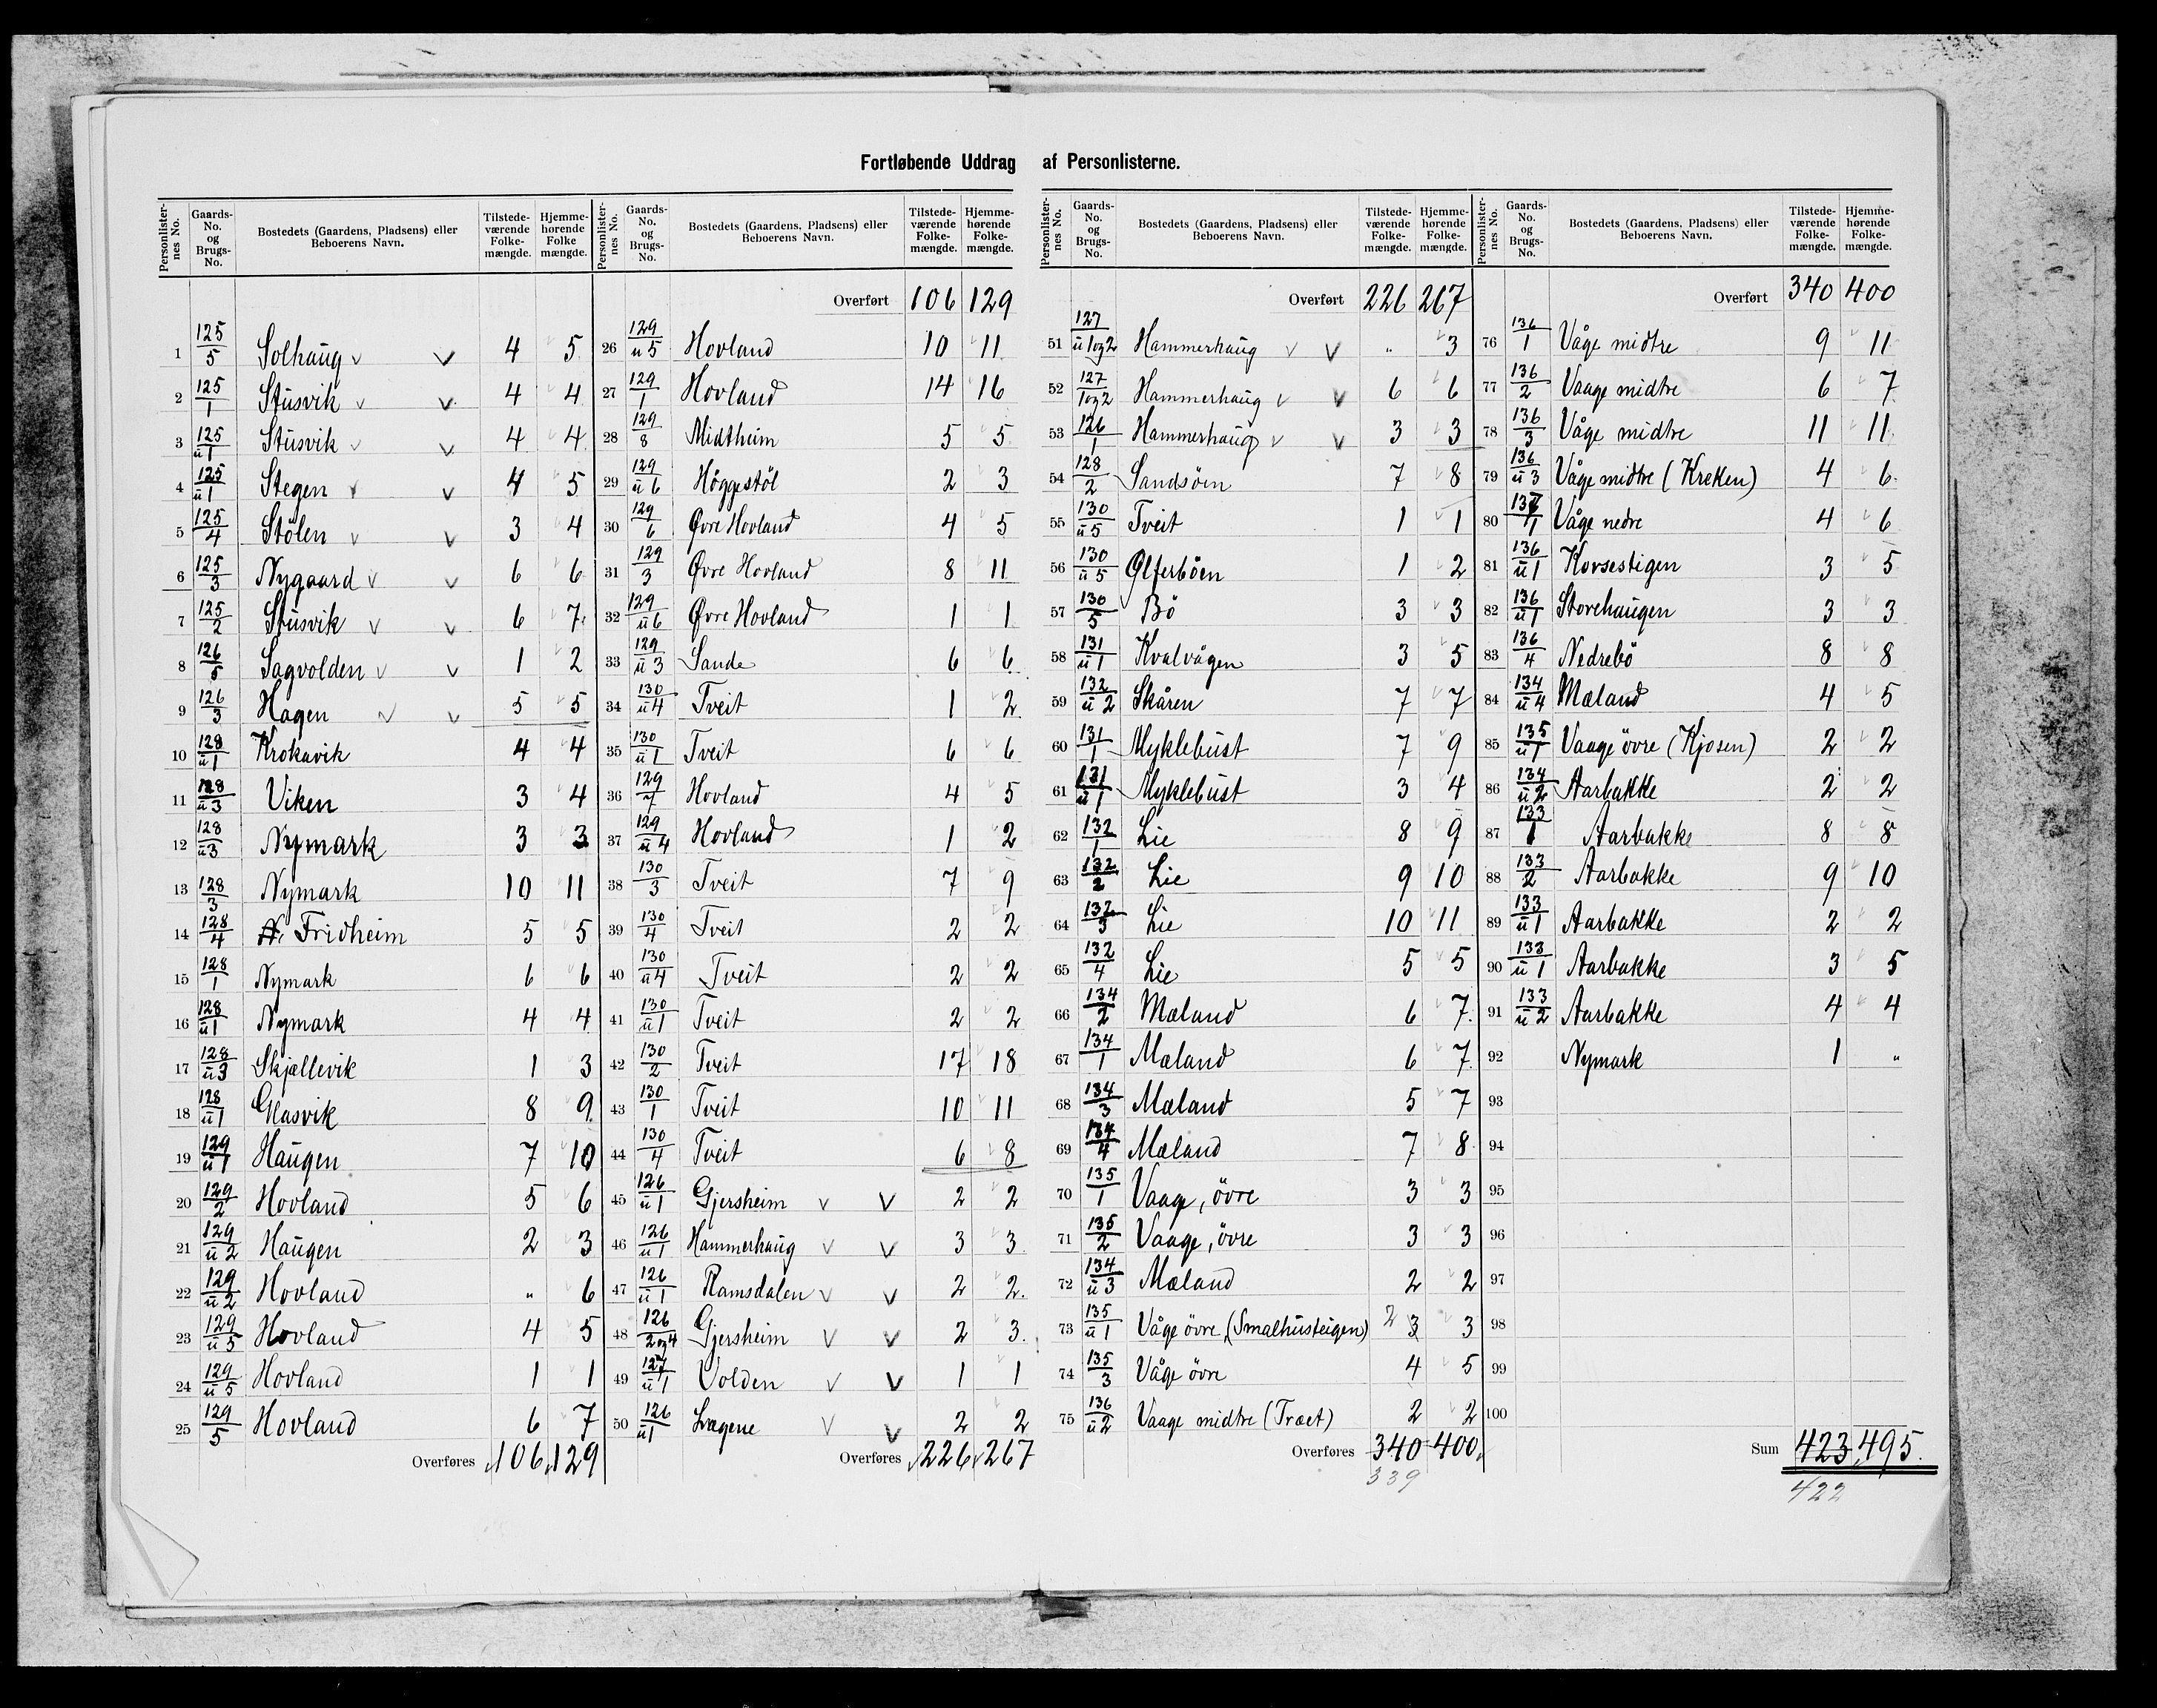 Fortløbende Uddrag af Personlisterne.
Personlisternes No. Gaards-No. og Brugs-No. Bostedets (Gaardens, Pladsens) eller Beboerens Navn. Tilstedeværende Folkemængde. Hjemmehørende Folkemængde.
1 125/5 Solhaug v v 4 5
2 125/1 Stusvik v v 4 4
3 125/u1 Stusvik v v 4 4
4 125/u1 Stegen v v 4 5
5 125/4 Stölen v v 3 4
6 125/3 Nygaard v v 6 6
7 125/2 Stusvik v v 6 7
8 126/5 Sagvolden v v 1 2
9 126/3 Hagen v v 5 5
10 128/u1 Krokavik 4 4
11 128/u3 Viken 3 4
12 128/u3 Nymark 3 3
13 128/3 Nymark 10 11
14 128/4 Fridheim 5 5
15 128/1 Nymark 6 6
16 128/u1 Nymark 4 4
17 128/u3 Skjællevik 1 3
18 128/u1 Glasvik 8 9
19 129/u1 Haugen 7 10
20 129/2 Hovland 5 6
21 129/u2 Haugen 2 3
22 129/u2 Hovland " 6
23 129/u5 Hovland 4 5
24 129/u5 Hovland 1 1
25 129/5 Hovland 6 7
Overføres 106 129
Personlisternes No. Gaards-No. og Brugs-No. Bostedets (Gaardens, Pladsens) eller Beboerens Navn. Tilstedeværende Folkemængde. Hjemmehørende Folkemængde.
Overført 106 129
26 129/u5 Hovland 10 11
27 129/1 Hovland 14 16
28 129/8 Midtheim 5 5
29 129/u6 Höggestöl 2 3
30 129/6 Øvre Hovland 4 5
31 129/3 Øvre Hovland 8 11
32 129/u6 Øvre Hovland 1 1
33 129/u3 Sande 6 6
34 130/u4 Tveit 1 2
35 130/u1 Tveit 6 6
36 129/7 Hovland 4 5
37 129/u4 Hovland 1 2
38 130/3 Tveit 7 9
39 130/4 Tveit 2 2
40 130/u4 Tveit 2 2
41 130/u1 Tveit 2 2
42 130/2 Tveit 17 18
43 130/1 Tveit 10 11
44 130/4 Tveit 6 8
45 126/u1 Gjersheim v v 2 2
46 126/u1 Hammerhaug v v 3 3
47 126/u1 Ramsdalen v v 2 2
48 126/2og4 Gjersheim v v 2 3
49 127/u1 Volden v v 1 1
50 126/u1 Lægene v v 2 2
Overføres 226 267
Personlisternes No. Gaards-No. og Brugs-No. Bostedets (Gaardens, Pladsens) eller Beboerens Navn. Tilstedeværende Folkemængde. Hjemmehørende Folkemængde.
Overført 226 267
51 127/u1og2 Hammerhaug v v " 3
52 127/1og2 Hammerhaug v v 6 6
53 126/1 Hammerhaug v v 3 3
54 128/2 Sandsöen 7 8
55 130/u5 Tveit 1 1
56 130/u5 Olferböen 1 2
57 130/5 Bö 3 3
58 131/u1 Kvalvågen 3 5
59 132/u2 Skåren 7 7
60 131/1 Myklebust 7 9
61 131/u1 Myklebust 3 4
62 132/1 Lie 8 9
63 132/2 Lie 9 10
64 132/3 Lie 10 11
65 132/4 Lie 5 5
66 134/2 Mæland 6 7
67 134/1 Mæland 6 7
68 134/3 Mæland 5 7
69 134/4 Mæland 7 8
70 135/1 Vaage, övre 3 3
71 135/2 Vaage, övre 3 3
72 134/u3 Mæland 2 2
73 135/u1 Våge övre (Smalhusteigen) 2 3 3
74 135/3 Våge övre 4 5
75 136/u2 Vaage midtre (Træet) 2 2
Overføres 340 400
339
Personlisternes No. Gaards-No. og Brugs-No. Bostedets (Gaardens, Pladsens) eller Beboerens Navn. Tilstedeværende Folkemængde. Hjemmehørende Folkemængde.
Overført 340 400
76 136/1 Våge midtre 9 11
77 136/2 Vaage midtre 6 7
78 136/3 Våge midtre 11 11
79 136/u3 Våge midtre (Kreken) 4 6
80 137/1 Våge nedre 4 6
81 136/u1 Korsestigen 3 5
82 136/u1 Storehaugen 3 3
83 136/4 Nedrebö 8 8
84 134/u4 Mæland 4 5
85 135/u1 Vaage övre (Kjosen) 2 2
86 134/u2 Aarbakke 2 2
87 133/1 Aarbakke 8 8
88 133/2 Aarbakke 9 10
89 133/u1 Aarbakke 2 2
90 133/u1 Aarbakke 3 5
91 133/u2 Aarbakke 4 4
92 Nymark 1 "
93
94
95
96
97
98
99
100
Sum 423 495.
422